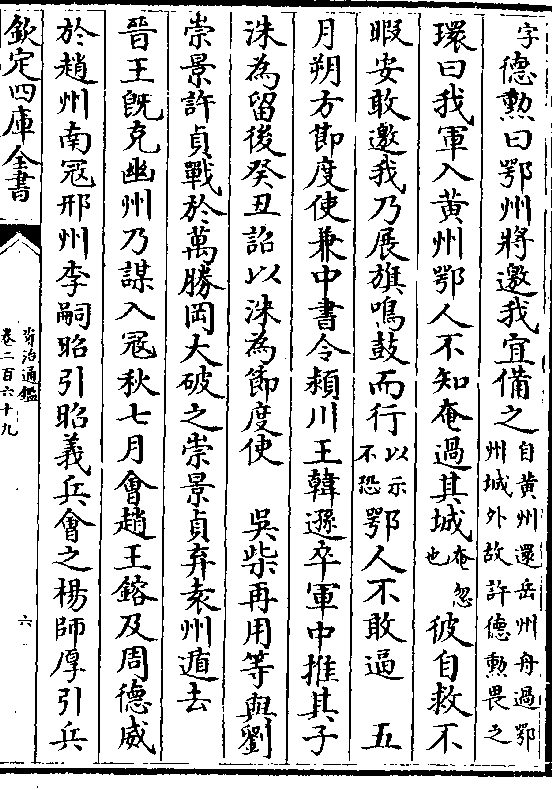 字德勲曰鄂州將邀我宜備之自黄州還岳州舟過鄂州城外故許德勲畏之
環曰我軍入黄州鄂人不知奄過其城奄忽也彼自救不
暇安敢邀我乃展旗鳴鼓而行以示不恐鄂人不敢逼　五
月朔方節度使兼中書令潁川王韓遜卒軍中推其子
洙為留後癸丑詔以洙為節度使　吳柴再用等與劉
崇景許貞戰於萬勝岡大破之崇景貞弃袁州遁去
晉王旣克幽州乃謀入冦秋七月會趙王鎔及周德威
於趙州南冦邢州李嗣昭引昭義兵會之楊師厚引兵
欽定四庫全書
資治通鑑
卷二百六十九
六